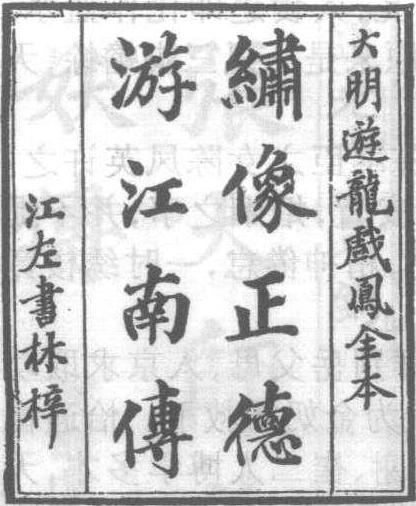 大明遊龍戲鳳全本
繡像正德
游江南傳
江左書林梓